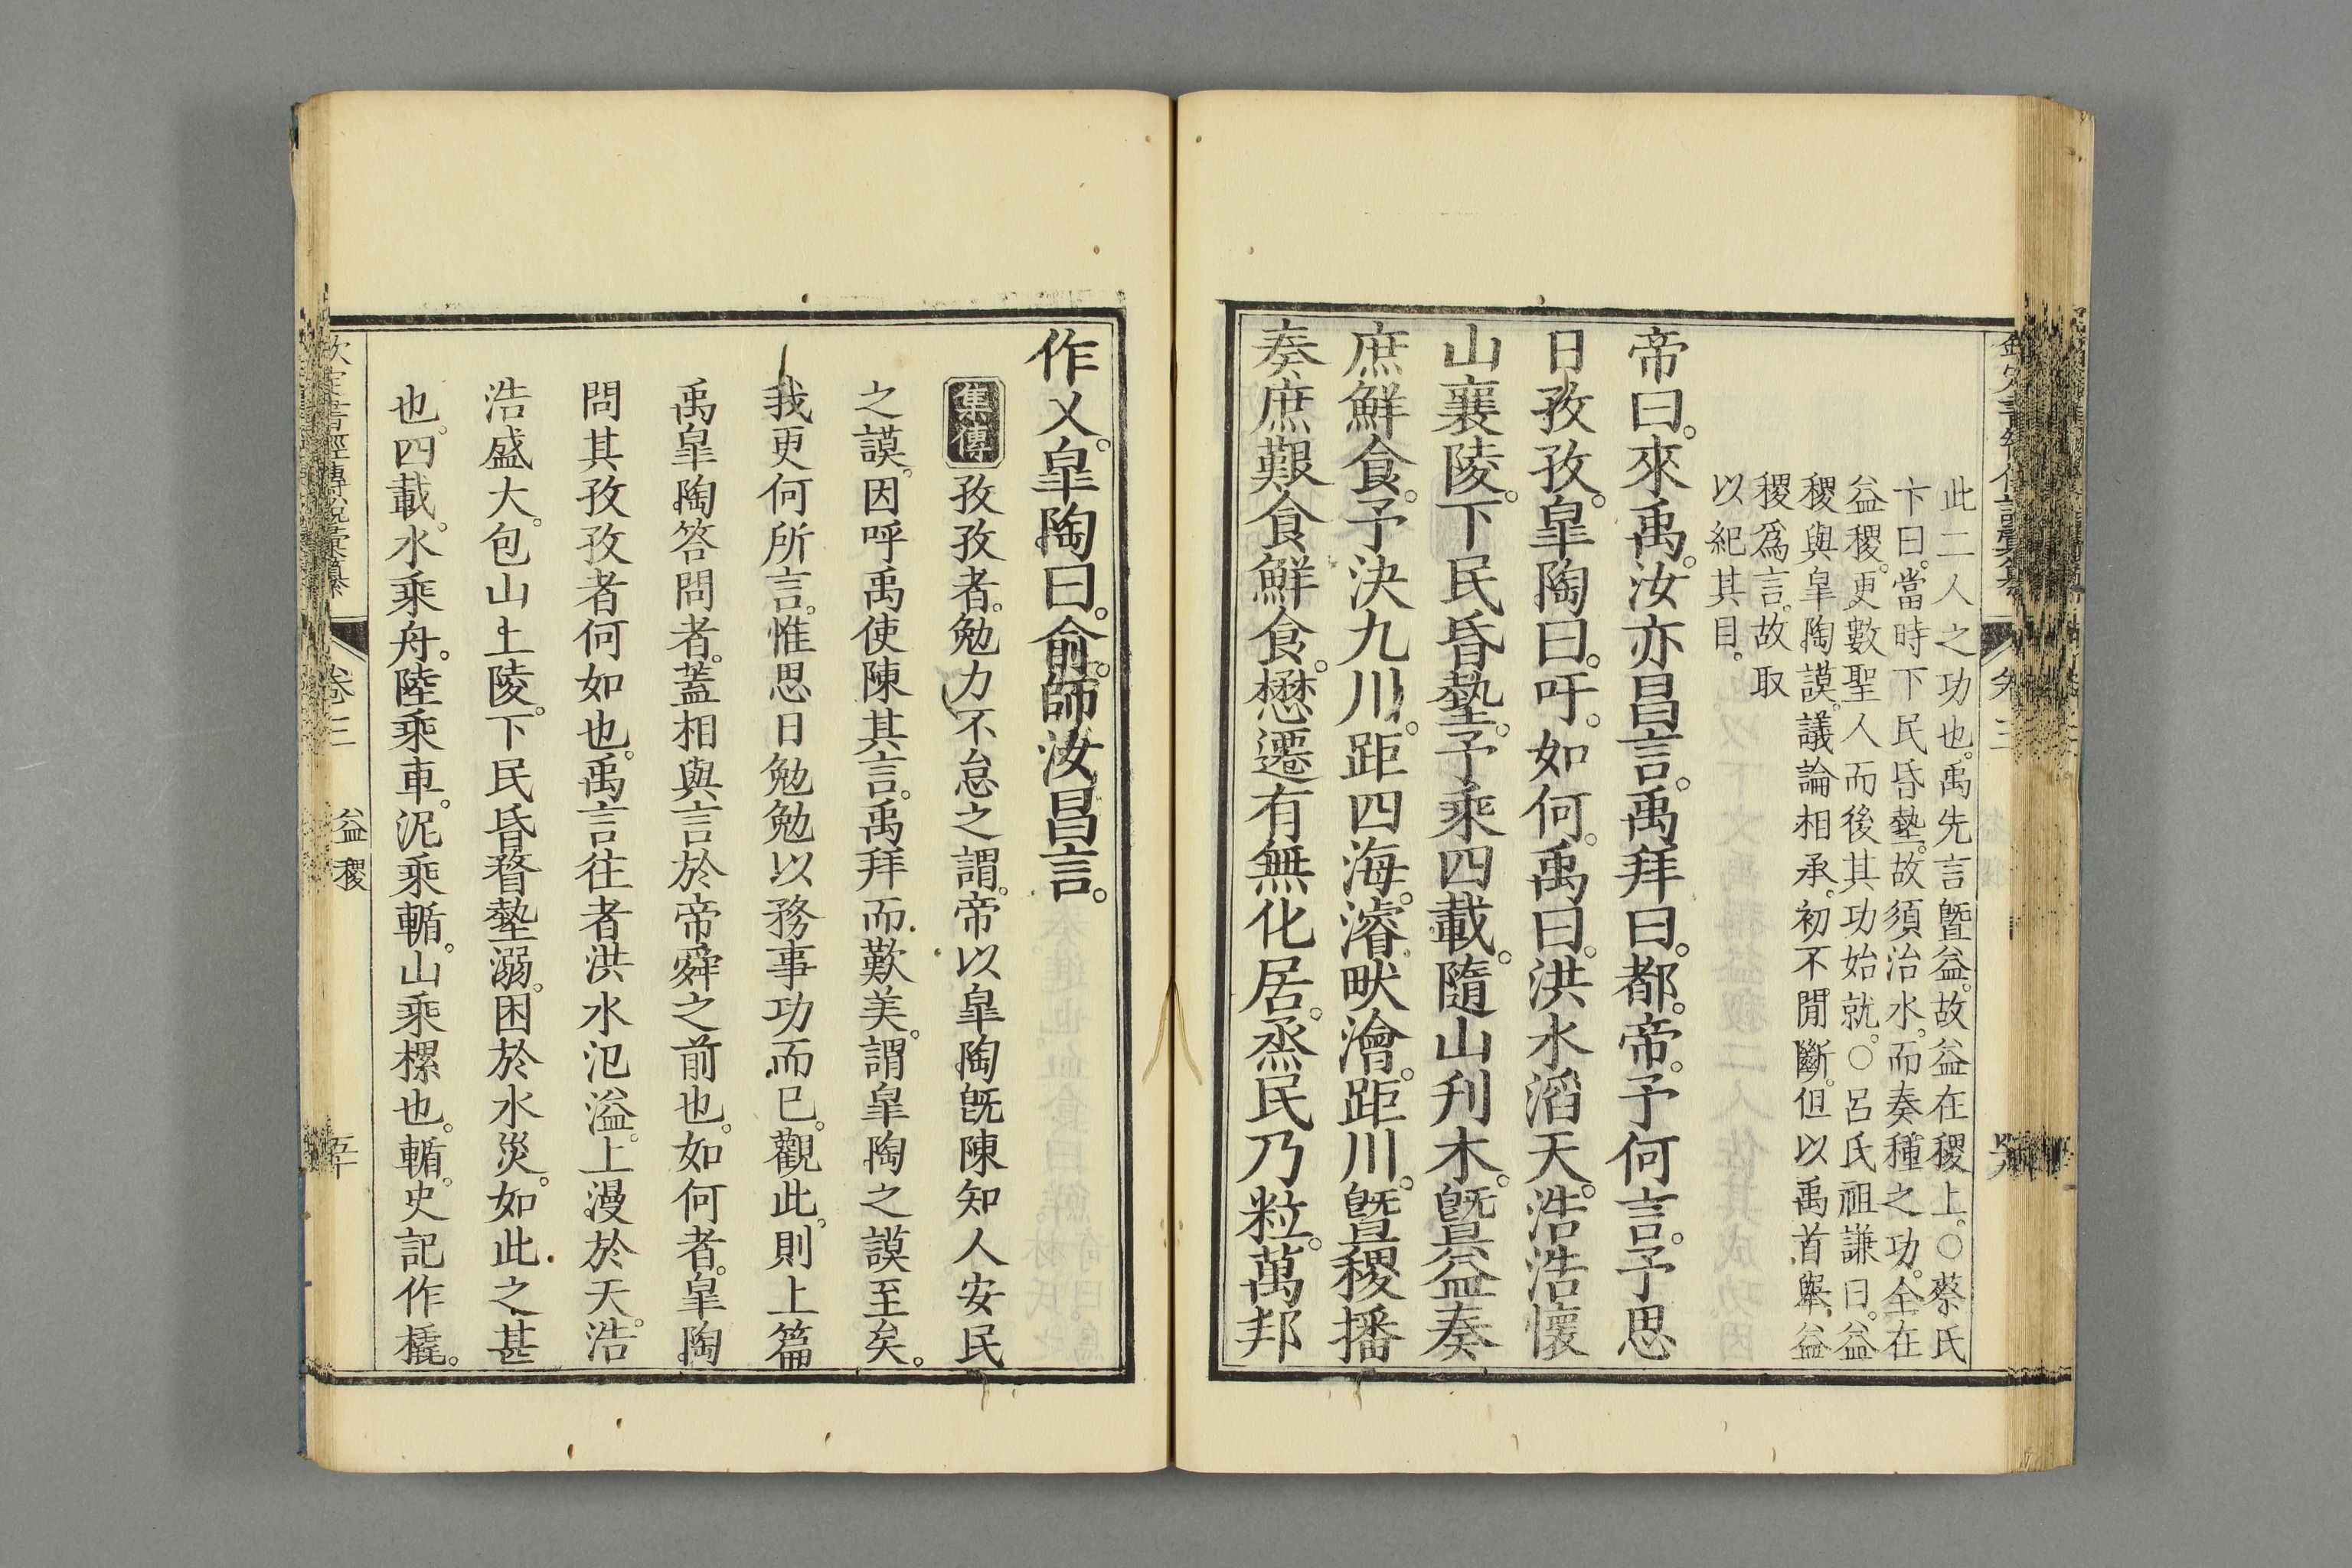 此二人之功也。禹先言曁益。故益在稷上。○蔡氏
卞曰。當時下民昏墊。故須治水。而奏種之功。全在
益稷。更數聖人而後其功始就。○呂氏祖謙曰。益
稷與皐陶謨。議論相承。初不閒斷。但以禹首舉益
稷爲言。故取
以紀其目。
帝曰。來禹。汝亦昌言。禹拜曰。都。帝。予何言。予思
日孜孜。皐陶曰。吁。如何。禹曰。洪水滔天。浩浩懷
山襄陵。下民昏墊。予乘四載。隨山刋木。曁益奏
庶鮮食。予決九川。距四海。濬畎澮。距川。曁稷播
奏庶艱食鮮食。懋遷有無化居。烝民乃粒。萬邦
作乂。皐陶曰。俞。師汝昌言。
集傳 孜孜者。勉力不怠之謂。帝以皐陶旣陳知人安民
之謨。因呼禹使陳其言。禹拜而歎美。謂皐陶之謨至矣。
我更何所言。惟思日勉勉以務事功而已。觀此。則上篇
禹皐陶答問者。蓋相與言於帝舜之前也。如何者。皐陶
問其孜孜者何如也。禹言往者洪水汜溢。上漫於天。浩
浩盛大。包山上陵。下民昏瞀墊溺。困於水災。如此之甚
也。四載。水乘舟。陸乘車。泥乘輴。山乘樏也。輴。史記作橇。
欽定書經傳說彙纂 卷三 益稷 五十